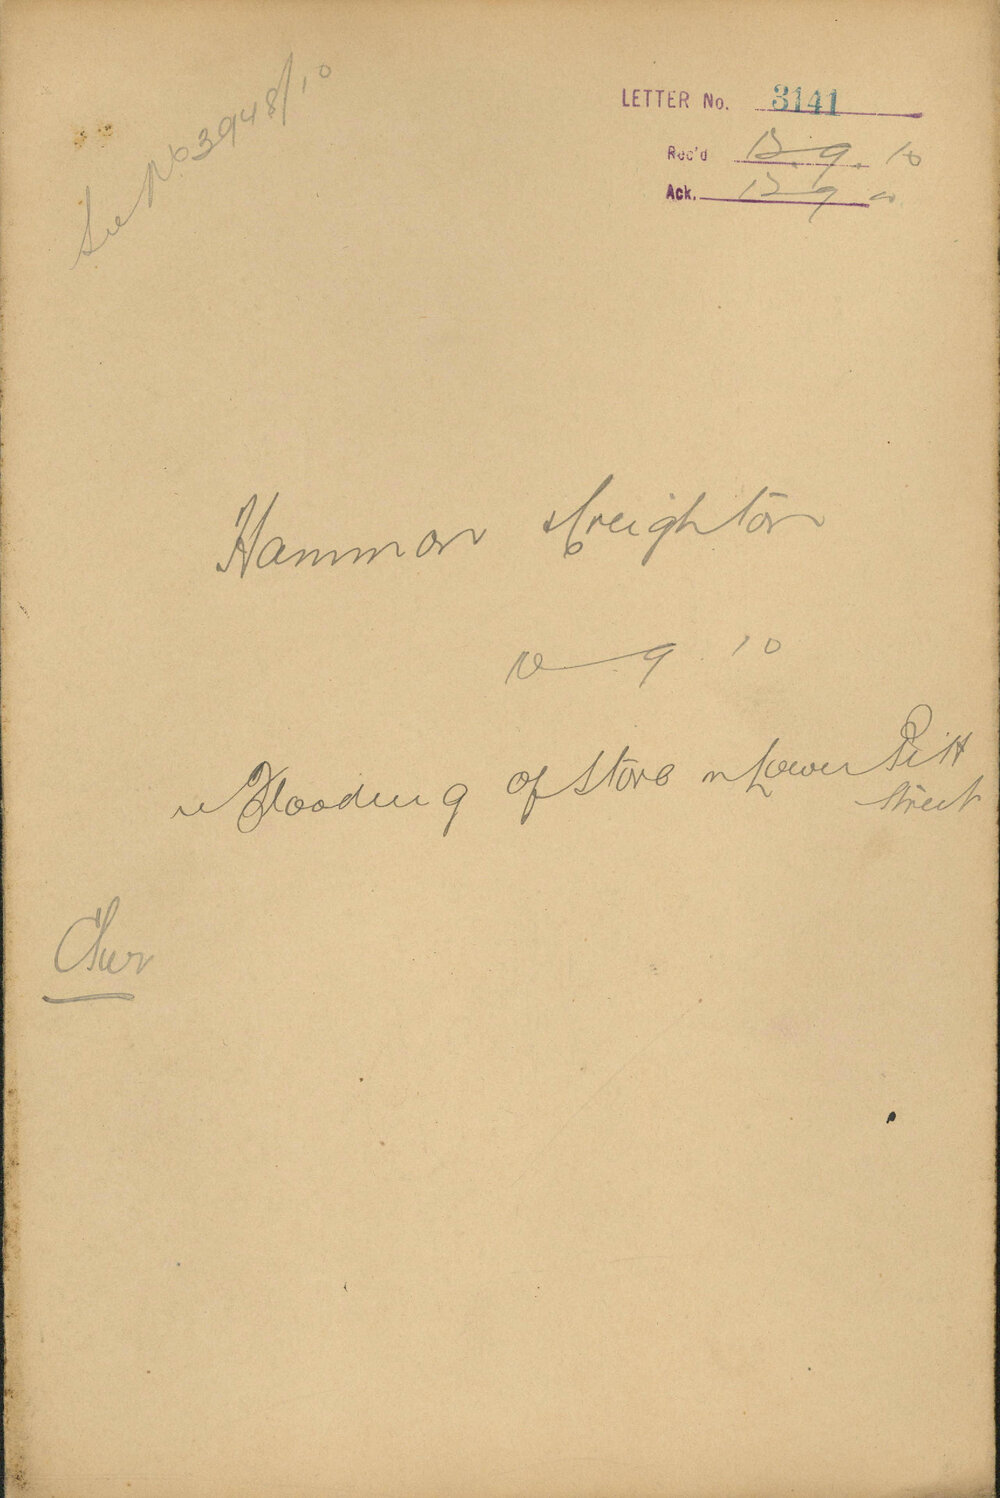 See No 3948/10
LETTER No. 3141
Rec'd 13.9.10
Ack. 13 9 10
Hammon & Creighton
10 9 10
re Flooding of Store in Lower Pitt
Street